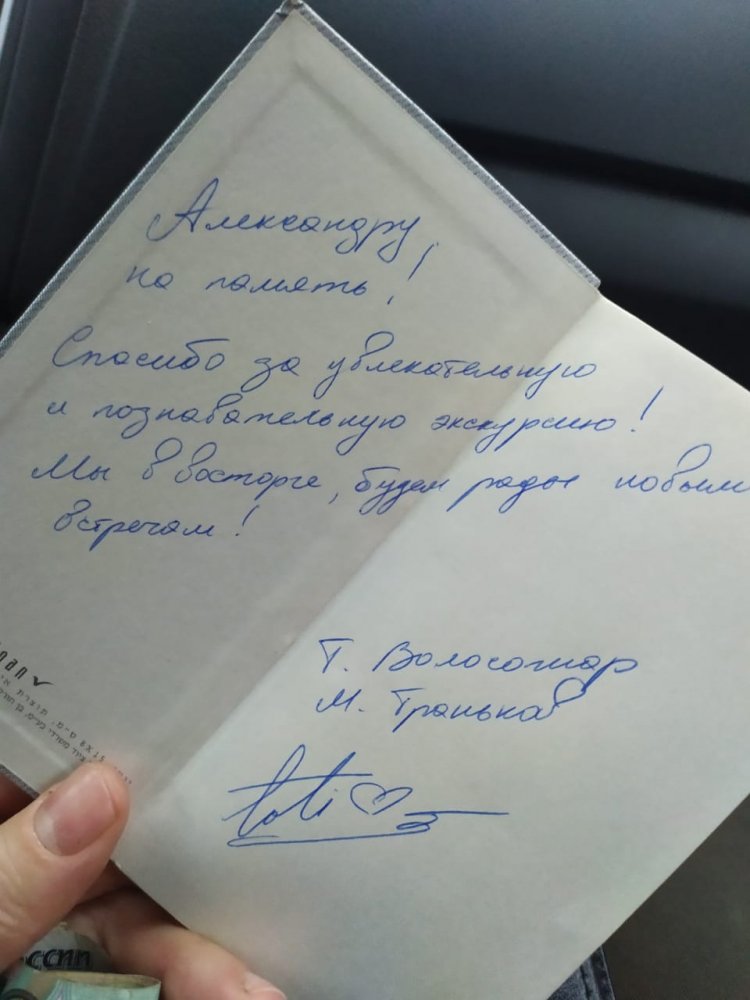 Александру,
на память!
Спасибо за увлекательную
и познавательную экскурсию!
Мы в восторге, будем рады новым
встречам!
Т. Волосожар
М. Траньков